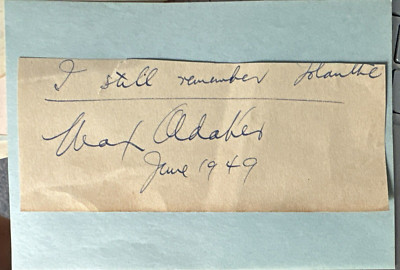 I still remember Iolanthe
Max Oldaker
June 1949